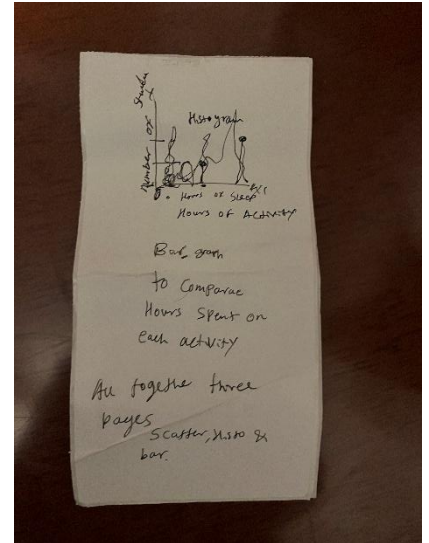 Number of Studen
Histogram
Hours of Sleep
Hours of Activity
Bar graph
to Comparae
Hours Spent on
each activity
All togethe three
pages
Scatter, Histo &
bar.